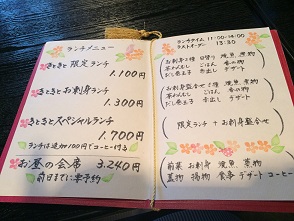 ランチメニュー
きときと 限定ランチ
1.100円
きときとお刺身ランチ
1.300円
きときとスペシャルランチ
1.700円
ランチは追加100円でコーヒー付き
お昼の会席 3.240円
前日までに要予約
ランチタイム 11:00-14:00
ラストオーダー 13:30
お刺身2種 日替り 焼魚 煮物
茶わんむし ごはん 香の物
だし巻玉子 赤出し デザート
お刺身盛合せ 焼魚 煮物
茶わんむし ごはん 香の物
だし巻玉子 赤出し デザート
限定ランチ + お刺身盛合せ
前菜 お刺身 焼魚 煮物
蒸物 揚物 食事 デザート コーヒー